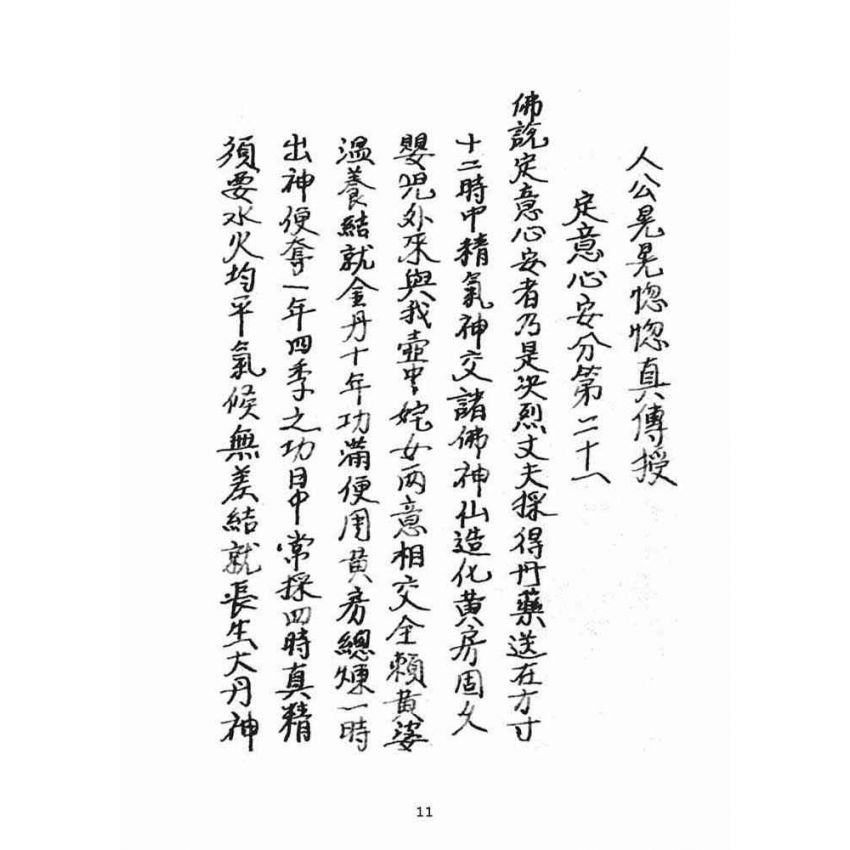 人公晃晃惚惚真傳授
定意心安分第二十八
佛說定意心安者乃是决烈丈夫採得丹藥送在方寸
十二時中精氣神交諸佛神仙造化黄房固久
嬰児外來與我壺中姹女两意相交全賴黄婆
温養結就金丹十年功滿便用黄房總煉一時
出神便奪一年四季之功日中常採四時真精
須要水火均平氣候無差結就長生大丹神
11